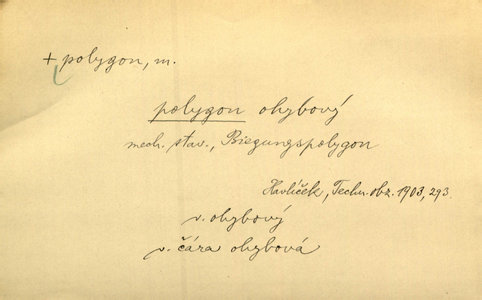 + polygon, m.
polygon ohybový
mech. stav., Biegungspolygon
Havlíček, Techn. obz. 1903, 293.
v. ohybový
v. čára ohybová